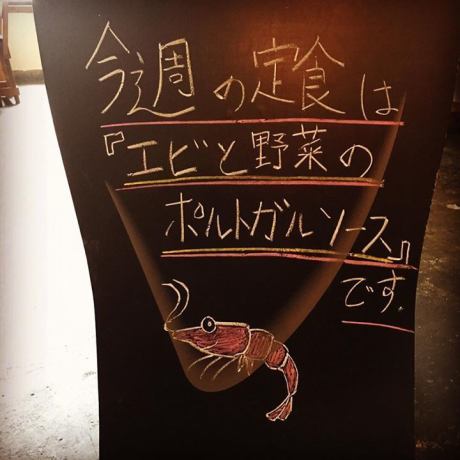 今週の定食は
『エビと野菜の
ポルトガルソース』
です.